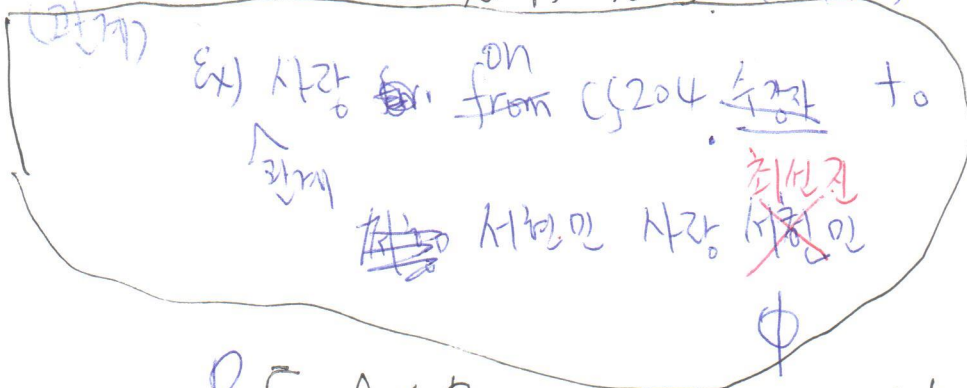 (관계)
Ex) 사랑 on from CS204 수강자 to
관계
최선진
서현민 사랑 서현민
φ